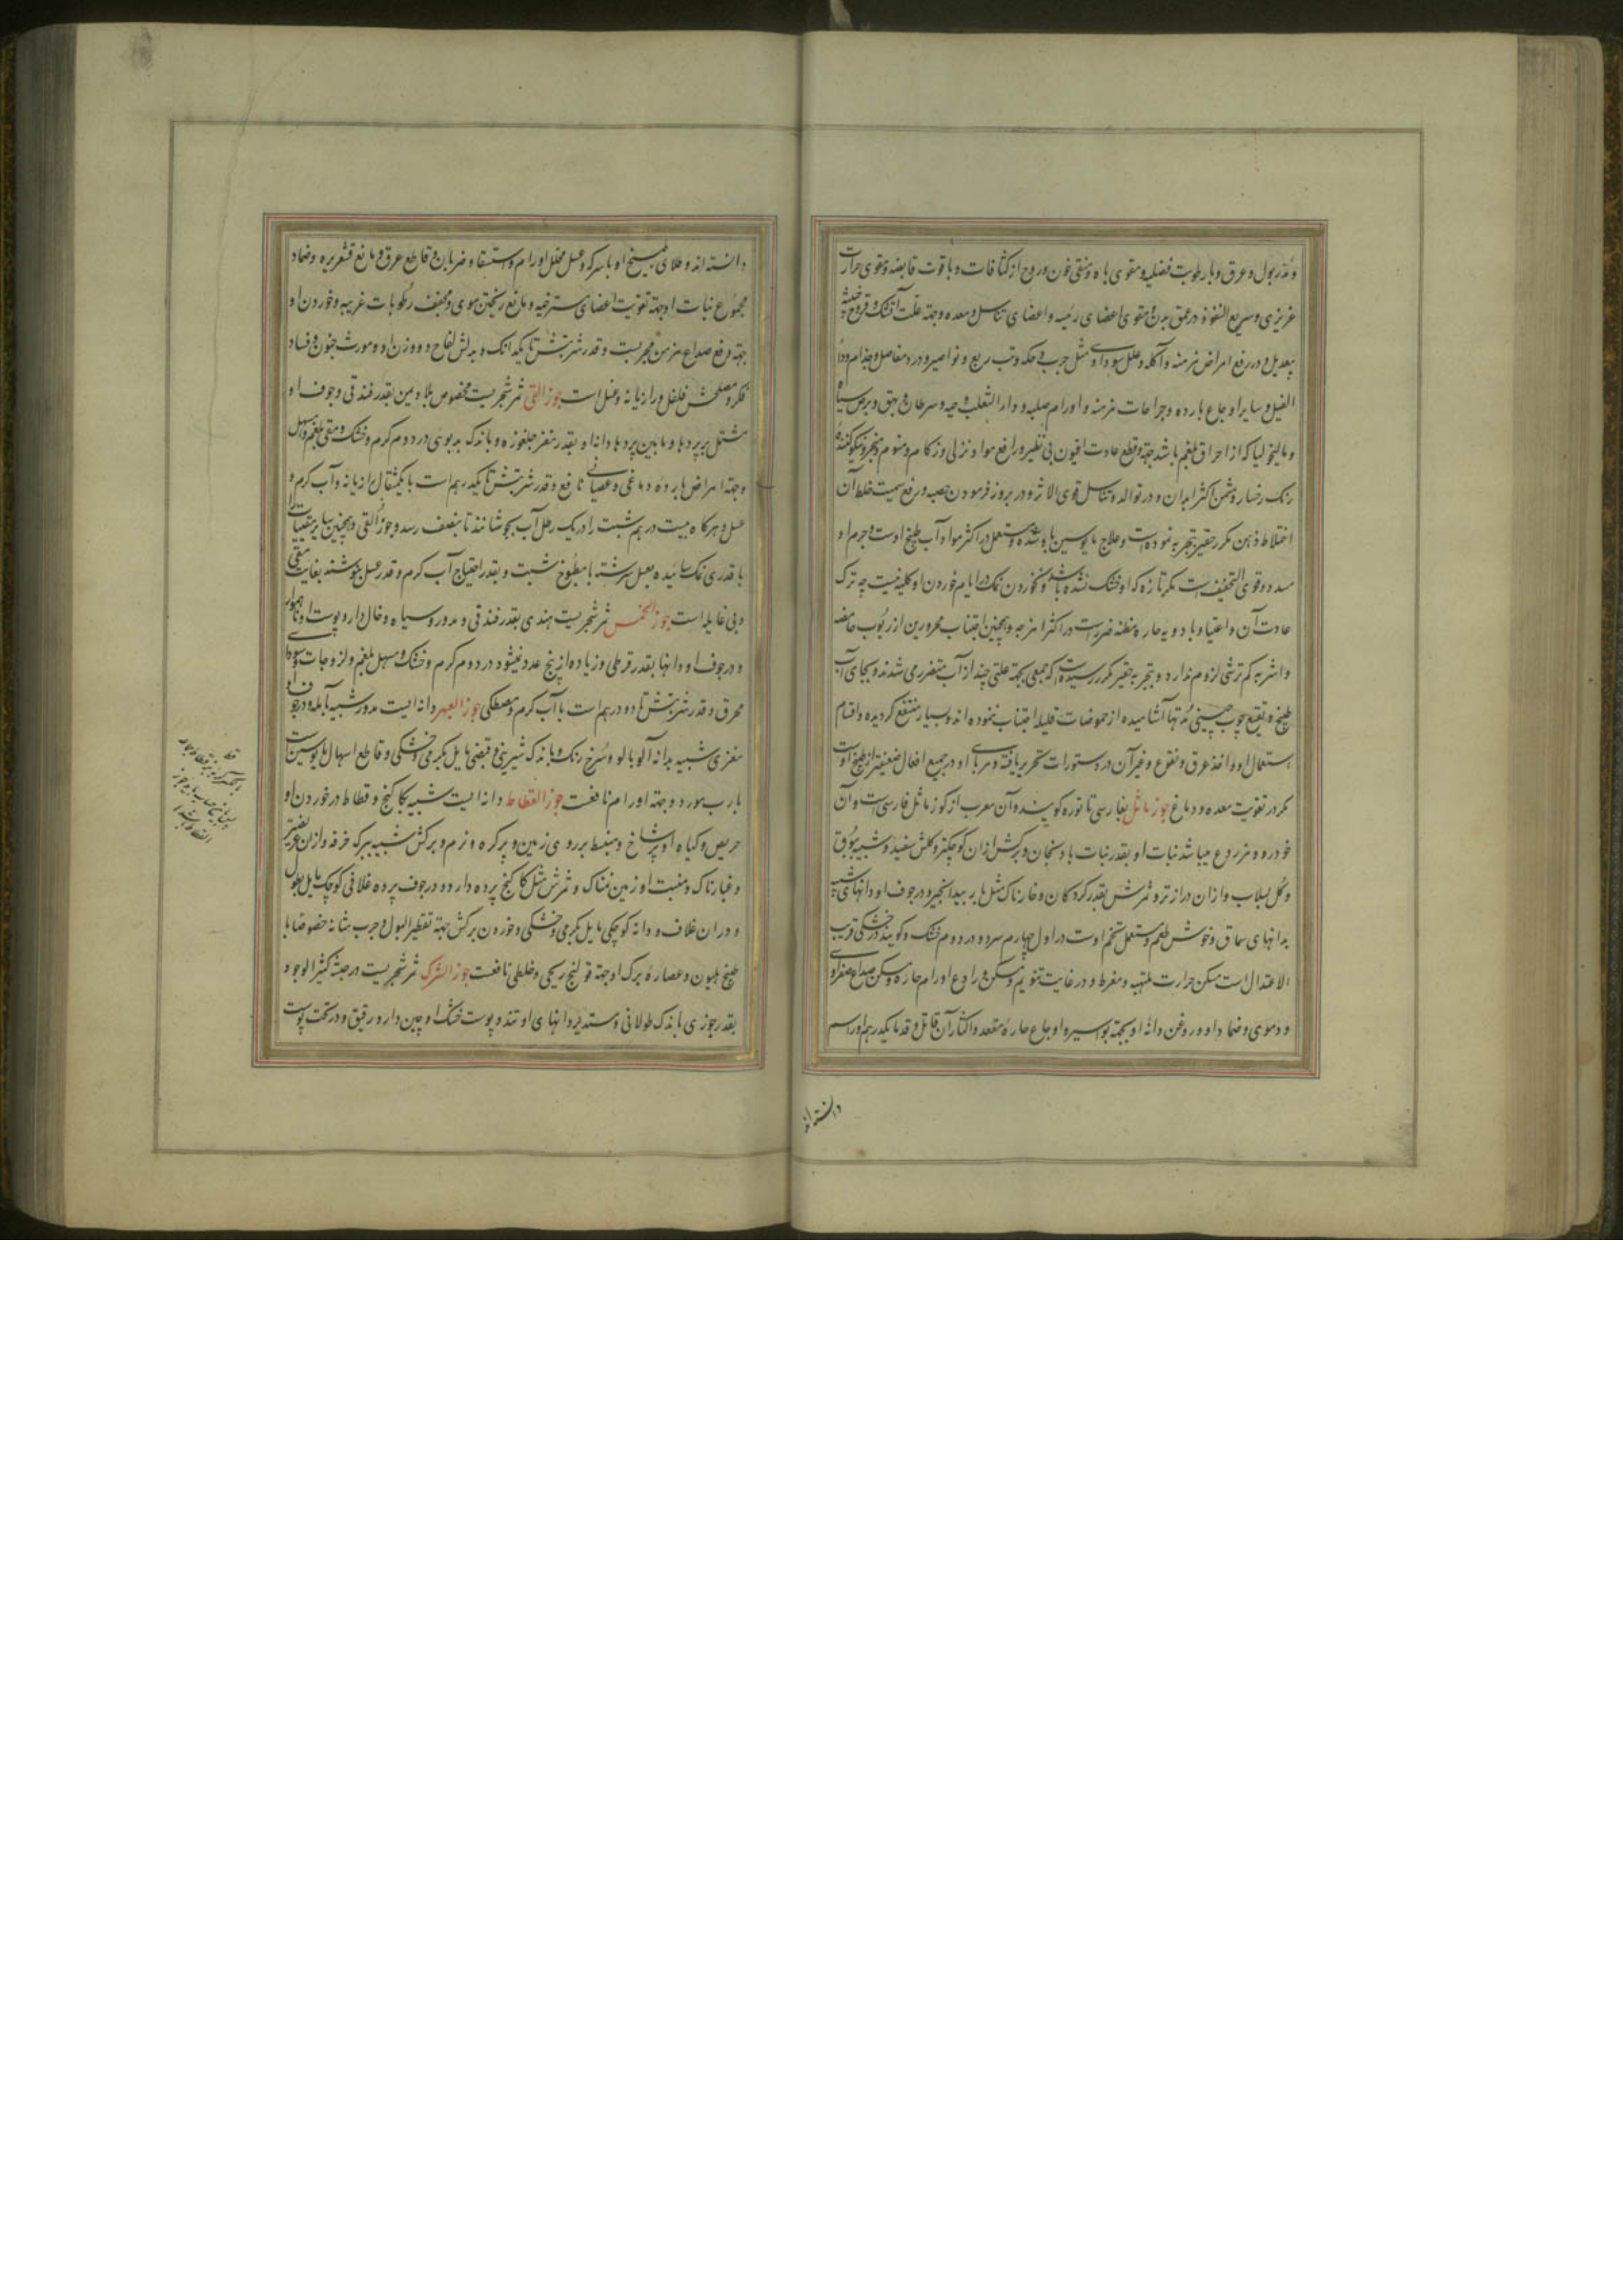 و مدر بول و عرق و با رطوبت فضلیه و مقوی باه و منقی خون و روح از کثافات و با قوت قابضه و مقوی حرارت
غریزی و سریع النفوذ در عمق بدن و مقوی اعضای رئیسه و اعضای تناسل و معده و جهة علت آتشک و قروح خبیثه
بیعدیل و در رفع امراض مزمنه و آکله و علل سوداوی مثل جرب و حکه و تب ربع و نواصیر و درد مفاصل و جذام و داء
الفیل و سایر اوجاع بارده و جراحات مزمنه و اورام صلبه و داء الثعلب و حیه و سرطان و بهق و برص سیاه
و مالیخولیا که از احراق بلغم باشد جهة و قطع عادت افیون بی نظیر و رافع مواد نزلی و زکام و منوم و مبخر و نیکو کننده
رنک رخسار و مسمن اکثر ابدان و در توالد و تناسل قوی الاثر و در بروز فرمودن حصبه و رفع سمیت خلط آن
اختلاط ذهن مکرر حقیر تجربه نموده است و علاج مایوسین باو شده و مستعمل در اکثر مواد آب طبیخ اوست و جرم او
مسدد و قوی التجفیف است مکر تازه که او خشک نشده باشد و نخوردن نمک در ایام خوردن او کلیه نیست چه ترک
عادت آن و اعتیاد با دویه حاره مظنه ضرر است در اکثر امزجه و همچنین اجتناب محرورین از ربوب حامضه
و اشربه کم ترشی لزوم ندارد و بتجربه حقیر مکرر رسیده است که جمعی بجهة علتی چند از آب متضرر می شدند و بجای آب
طبیخ و نقیع چوب چینی مدتها آشامیده از حموضات قلیله اجتناب ننموده اند و بسیار منتفع کردیده و اقسام
استعمال او و اخذ عرق و نقوع و غیر آن در دستورات تحریر یافته و مربای او در جمیع افعال ضعیفتر از طبیخ اوست
مکر در تقویت معده و دماغ جوز ماثل بفارسی تاتوره کویند و آن معرب از کوز ماثل فارسی است و آن
خودرو و مزروع میباشد نبات او بقدر نبات بادنجان و برکش از آن کوچکتر و کلش سفید و شبیه ببوق
و کل لبلاب و از آن دراز تر و ثمرش بقدر کردکان و خارناک مثل بار بیدانجیر و در جوف او دانهای شبیه
بدانهای سماق و خوش طعم و مستعمل تخم اوست در اول چهارم سرد و در دوم خشک و کویند در خشکی قریب
الاعتدال است مسکن حرارت ملتهبه و مفرط و در غایت تنویم و مسکن و رادع اورام حاره و مسکن صداع صفراوی
و دموی و ضماد او و روغن دانه او بجهة بواسیر و اوجاع حاره مقعد و اکثار آن قاتل و قدما یکدرهم او را سم
دانسته اند
دانسته اند و طلای بیخ او با سرکه و عسل محلل اورام و استسقاء و ضربان و قاطع عرق و مانع قشعریره و ضماد
مجموع نبات او جهة تقویت اعضای مسترخیه و مانع ریختن موی و مجفف رطوبات غریبه و خوردن او
جهة رفع صداع مزمن مجربست و قدر شربتش تا یکدانک و بدلش لفاح دو وزن او و مورث جنون و فساد
فکر و مصلحش فلفل و رازیانه و عسل است جوز القی ثمر شجریست مخصوص بلاد یمن بقدر فندقی و جوف او
مشتمل بر پردها و مابین پردها دانه او بقدر مغز جلغوزه و باندک بدبوی در دوم کرم و خشک و مقی بلغم و مسهل
و جهة امراض بارده دماغی و عصبانی نافع و قدر شربتش تا یکدرهم است با یکمثقال رازیانه و آب کرم و
عسل و هرکاه بیست درهم شبت را در یک رطل آب بجوشانند تا بنصف رسد و جوز القی و همچنین سایر مقیئات را
با قدری نمک سائیده بعسل سرشته با مطبوخ شبت و بقدر احتیاج آب کرم و قدر عسل بنوشند بغایت مقی
و بی غایله است جوز الخمس ثمر شجریست هندی بقدر فندقی و مدور و سیاه و خال دار و پوست او ناهموار
و در جوف او دانها بقدر قرطمی و زیاده از پنج عدد نمیشود در دوم کرم و خشک و مسهل بلغم و لزوجات و سودای
محرق و قدر شربتش تا دو درهم است با آب کرم و مصطکی جوز العبهر دانه ایست مدور شبیه بآمله و در جوف او
مغزی شبیه بدانه آلوبالو و سرخ رنک و باندک شیرینی و قبضی مایل بکرمی و خشکی و قاطع اسهال مایوسین است
با رب مورد و جهة اورام نافعست جوز القطاط دانه ایست شبیه بکاکنج و قطاط در خوردن او
حریص و کیاه او پر شاخ و منبسط بر روی زمین و پر کره و نرم و برکش شبیه ببرک خرفه و از آن عریضتر
و غبارناک و منبت او زمین نمناک و ثمرش مثل کاکنج پرده دار و در جوف پرده غلافی کوچک مایل بطول
و در ان غلاف دو دانه کوچکی مایل بکرمی و خشکی و خوردن برکش جهة تقطیر البول و جرب مثانه خصوصا با
طبیخ هلیون و عصاره برک او جهة قولنج ریحی و خلطی نافعست جوز الشرک ثمر شجریست در حبشه کثیر الوجود
بقدر جوزی باندک طولانی و مستدیر دانهای او تند و پوست خشک او چین دار و رقیق و در تحت پوست